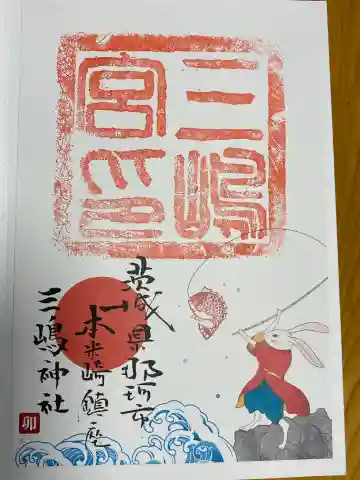 三嶋
宮印
茨城県那珂市
木米崎鎮座
三嶋神社
卯